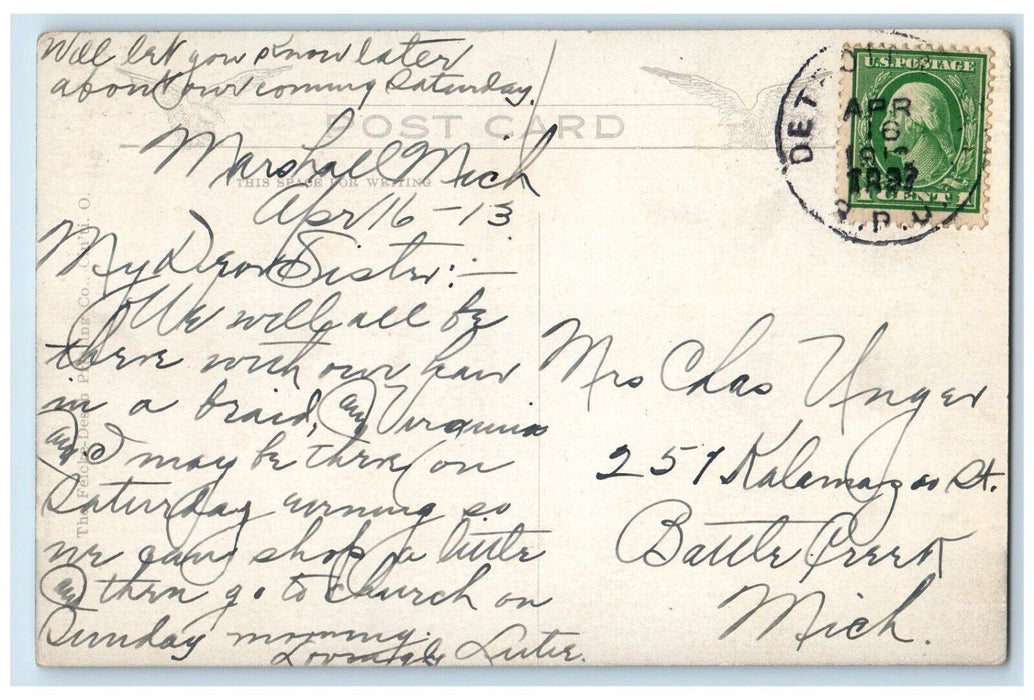 Will let you know later
about our coming Saturday.
POST CARD
THIS SPACE FOR WRITING
Marshall Mich
Apr 16 - 13
My Dear Sister:-
We will all be
there with our hair
in a braid, and Virginia
and I may be there on
Saturday evening so
we can shop a little
and then go to church on
Sunday morning.
Lovingly Lutie.
Mrs Chas Unger
257 Kalamazoo St.
Battle Creek
Mich.
U.S. POSTAGE
1 CENT 1
DET
APR
16
R.P.O.
The Feicke-Desch Printing Co., Cin'ti, O.